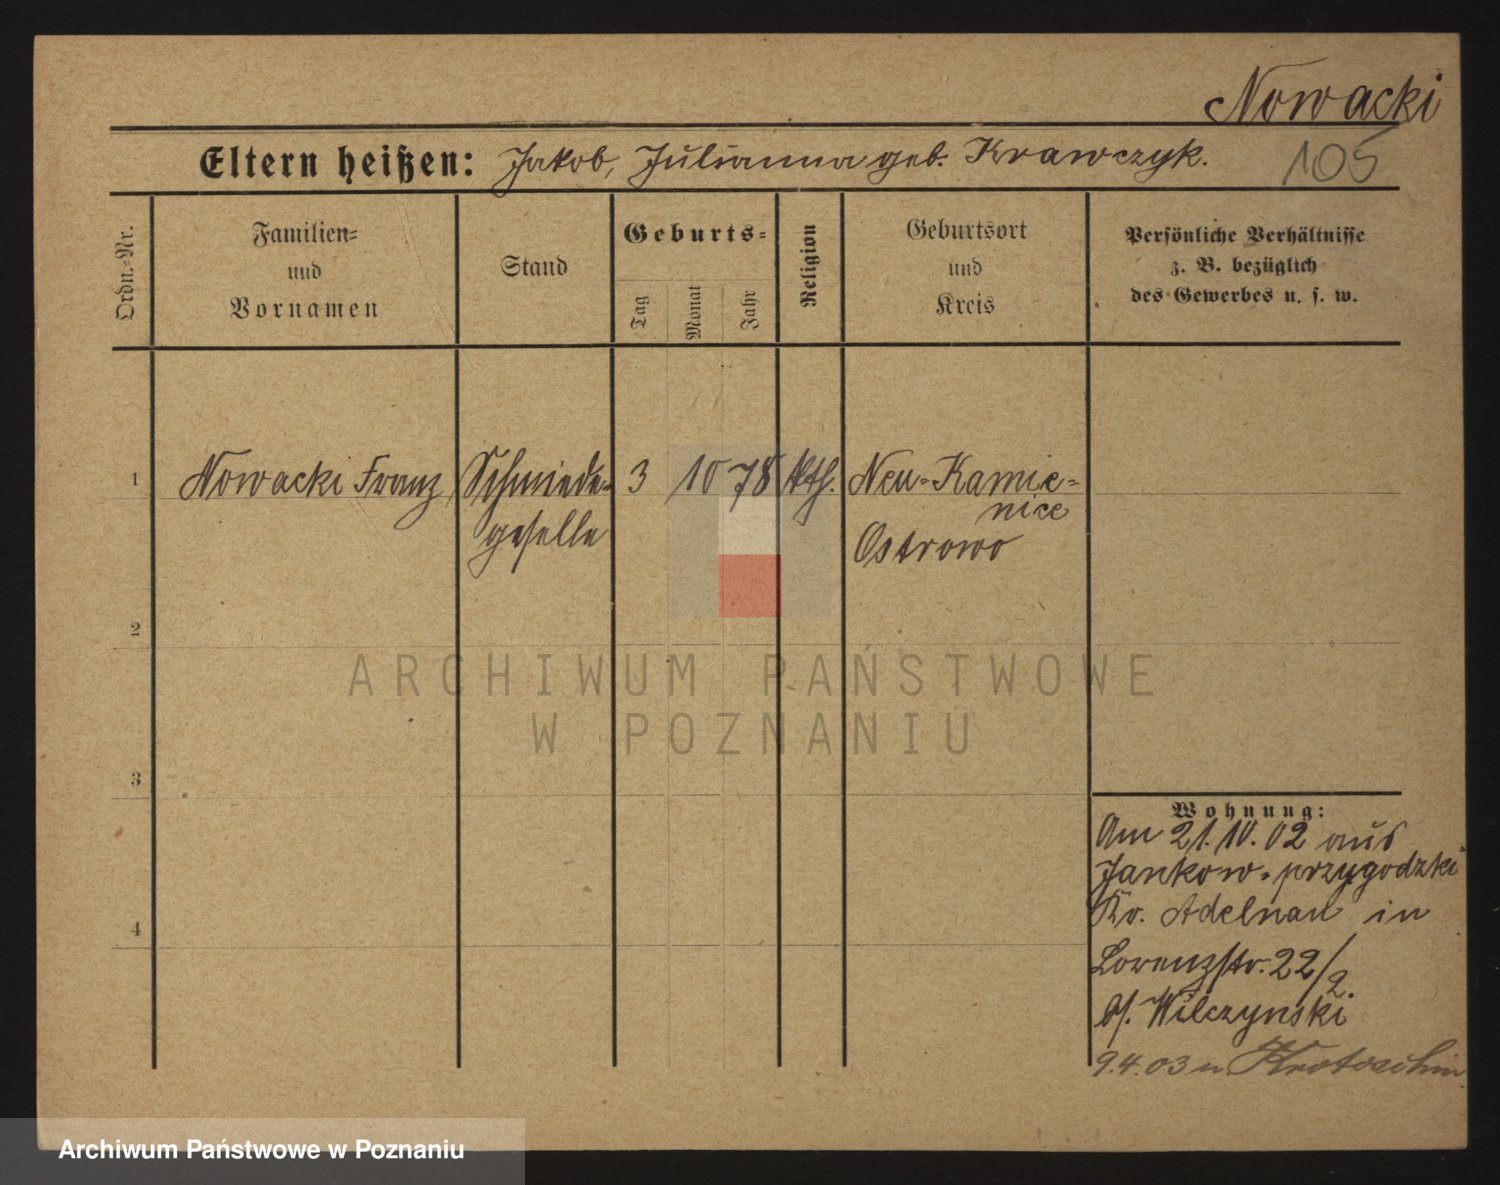 Nowacki
Eltern heißen: Jakob, Julianna geb. Krawczyk.
105
Ordn.-Nr.
Familien-
und
Vornamen
Stand
Geburts-
Tag
Monat
Jahr
Religion
Geburtsort
und
Kreis
Persönliche Verhältnisse
z. B. bezüglich
des Gewerbes u. s. w.
1 Nowacki Franz Schmiede- 3 10 78 kth. Neu-Kamie-
nice
geselle Ostrowo
2
ARCHIWUM PAŃSTWOWE
W POZNANIU
3
Wohnung:
Am 21.10.02 aus
Jankow-przygodzki
Kr. Adelnau in
4
Lorenzstr. 22/2
b/. Wilczynski
9.4.03 n. Krotoschin
Archiwum Państwowe w Poznaniu